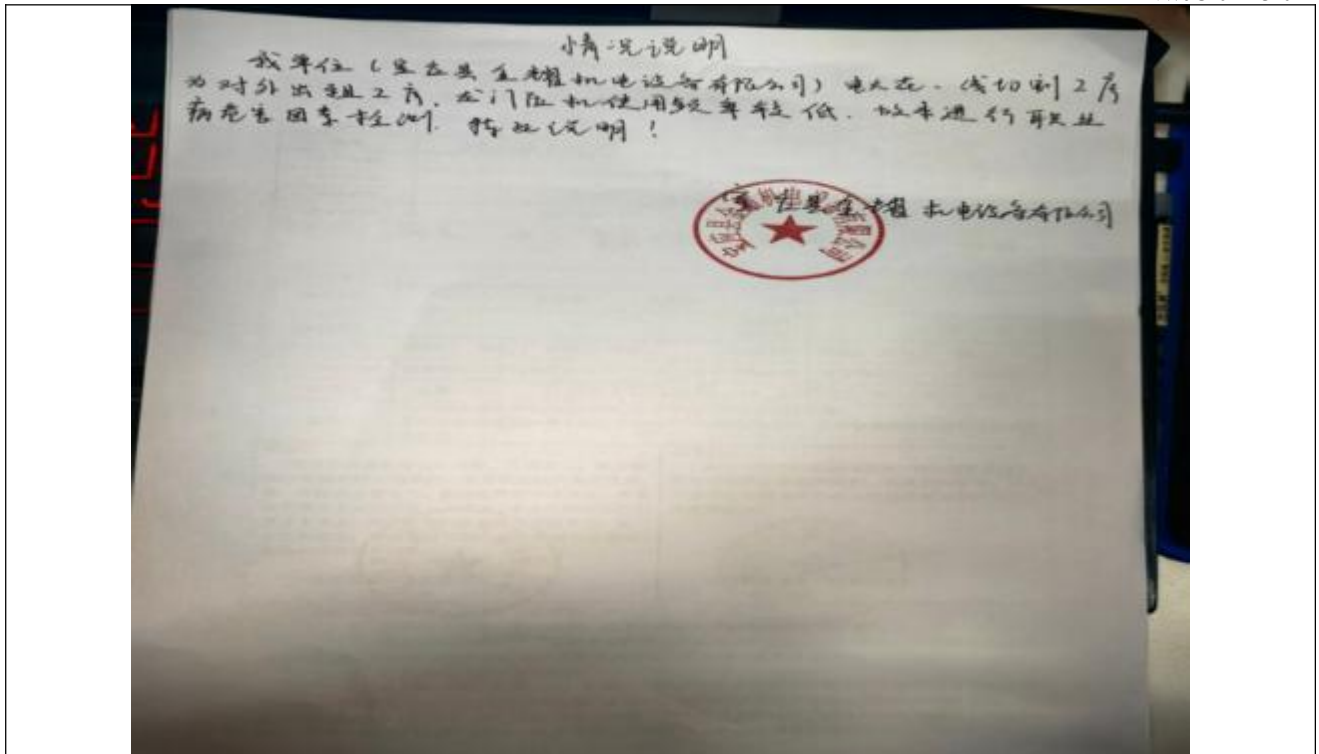 情况说明
我单位(宝应县金耀机电设备有限公司)电火花、线切割工序
为对外出租工序,龙门压机使用频率较低,故未进行职业
病危害因素检测,特此说明!
宝应县金耀机电设备有限公司